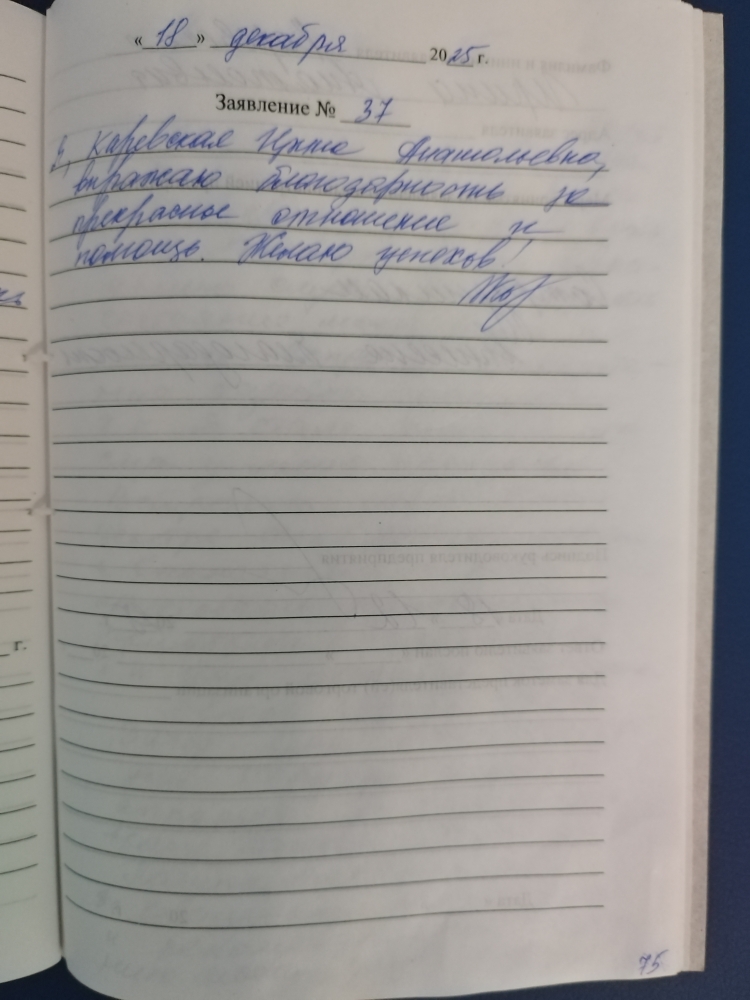 « 18 » декабря 2025 г.
Заявление № 37
Я, Киревская Ирина Анатольевна,
выражаю благодарность за
прекрасное отношение и
помощь. Желаю успехов!
г.
75